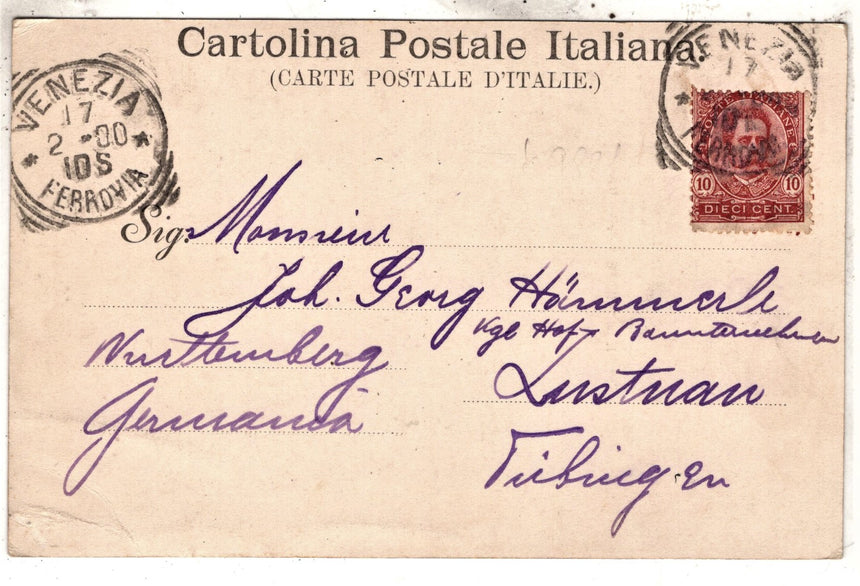 Cartolina Postale Italiana.
(CARTE POSTALE D'ITALIE.)
VENEZIA
17
2 - 00
10S
FERROVIA
VENEZIA
17
FERROVIA
POSTE ITALIANE
10 10
DIECI CENT.
Sig. Monsieur
Joh. Georg Hämmerle
Kgl Hof- Bauunternehmer
Lustnau
Württemberg
Germania
Tübingen